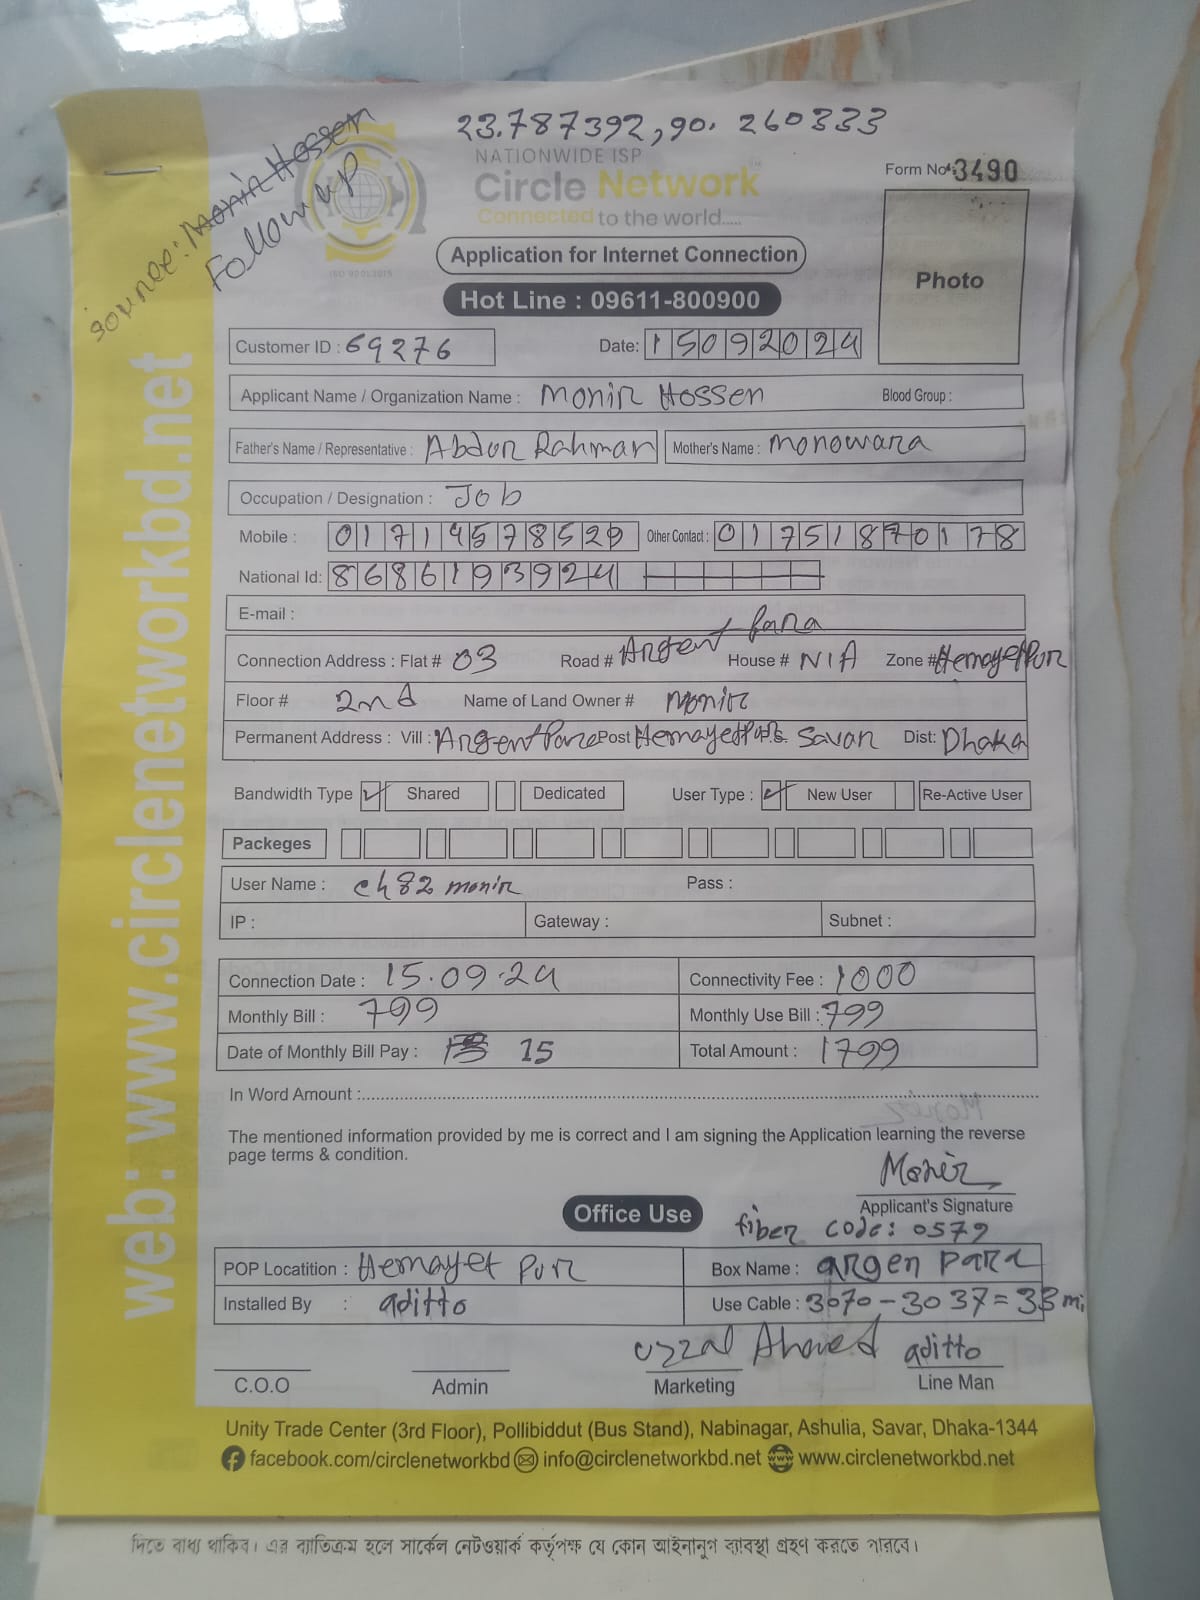 23.787392, 90. 260333
source: Monir Hossen
Follow up
NATIONWIDE ISP
Circle Network
Connected to the world.....
ISO 9001:2015
Form No: 3490
Application for Internet Connection
Photo
Hot Line : 09611-800900
Customer ID : 69276 Date: 15092024
Applicant Name / Organization Name : Monir Hossen Blood Group :
Father's Name / Representative : Abdur Rahman Mother's Name : Monowara
Occupation / Designation : Job
Mobile : Other Contact : 01751870178
National Id: 8686193924
E-mail :
Connection Address : Flat # 03 Road # Argent para House # N/A Zone # Hemayetpur
Floor # 2nd Name of Land Owner # Monir
Permanent Address : Vill : Argentpara Post Savar Dist: Dhaka
Bandwidth Type Shared Dedicated User Type : New User Re-Active User
Packeges
User Name : ch82 monir Pass :
IP : Gateway : Subnet :
Connection Date : 15.09.24 Connectivity Fee : 1000
Monthly Bill : 799 Monthly Use Bill : 799
Date of Monthly Bill Pay : 15 Total Amount : 1799
In Word Amount :
The mentioned information provided by me is correct and I am signing the Application learning the reverse
page terms & condition.
Monir
Applicant's Signature
Office Use
fiber code: 0579
POP Locatition : Hemayet pur Box Name : argen para
Installed By : aditto Use Cable : 3070-3037=33 mi
Uzzal Ahmed aditto
C.O.O Admin Marketing Line Man
Unity Trade Center (3rd Floor), Pollibiddut (Bus Stand), Nabinagar, Ashulia, Savar, Dhaka-1344
facebook.com/circlenetworkbd info@circlenetworkbd.net www.circlenetworkbd.net
web: www.circlenetworkbd.net
দিতে বাধ্য থাকিব। এর ব্যাতিক্রম হলে সার্কেল নেটওয়ার্ক কর্তৃপক্ষ যে কোন আইনানুগ ব্যাবস্থা গ্রহণ করতে পারবে।